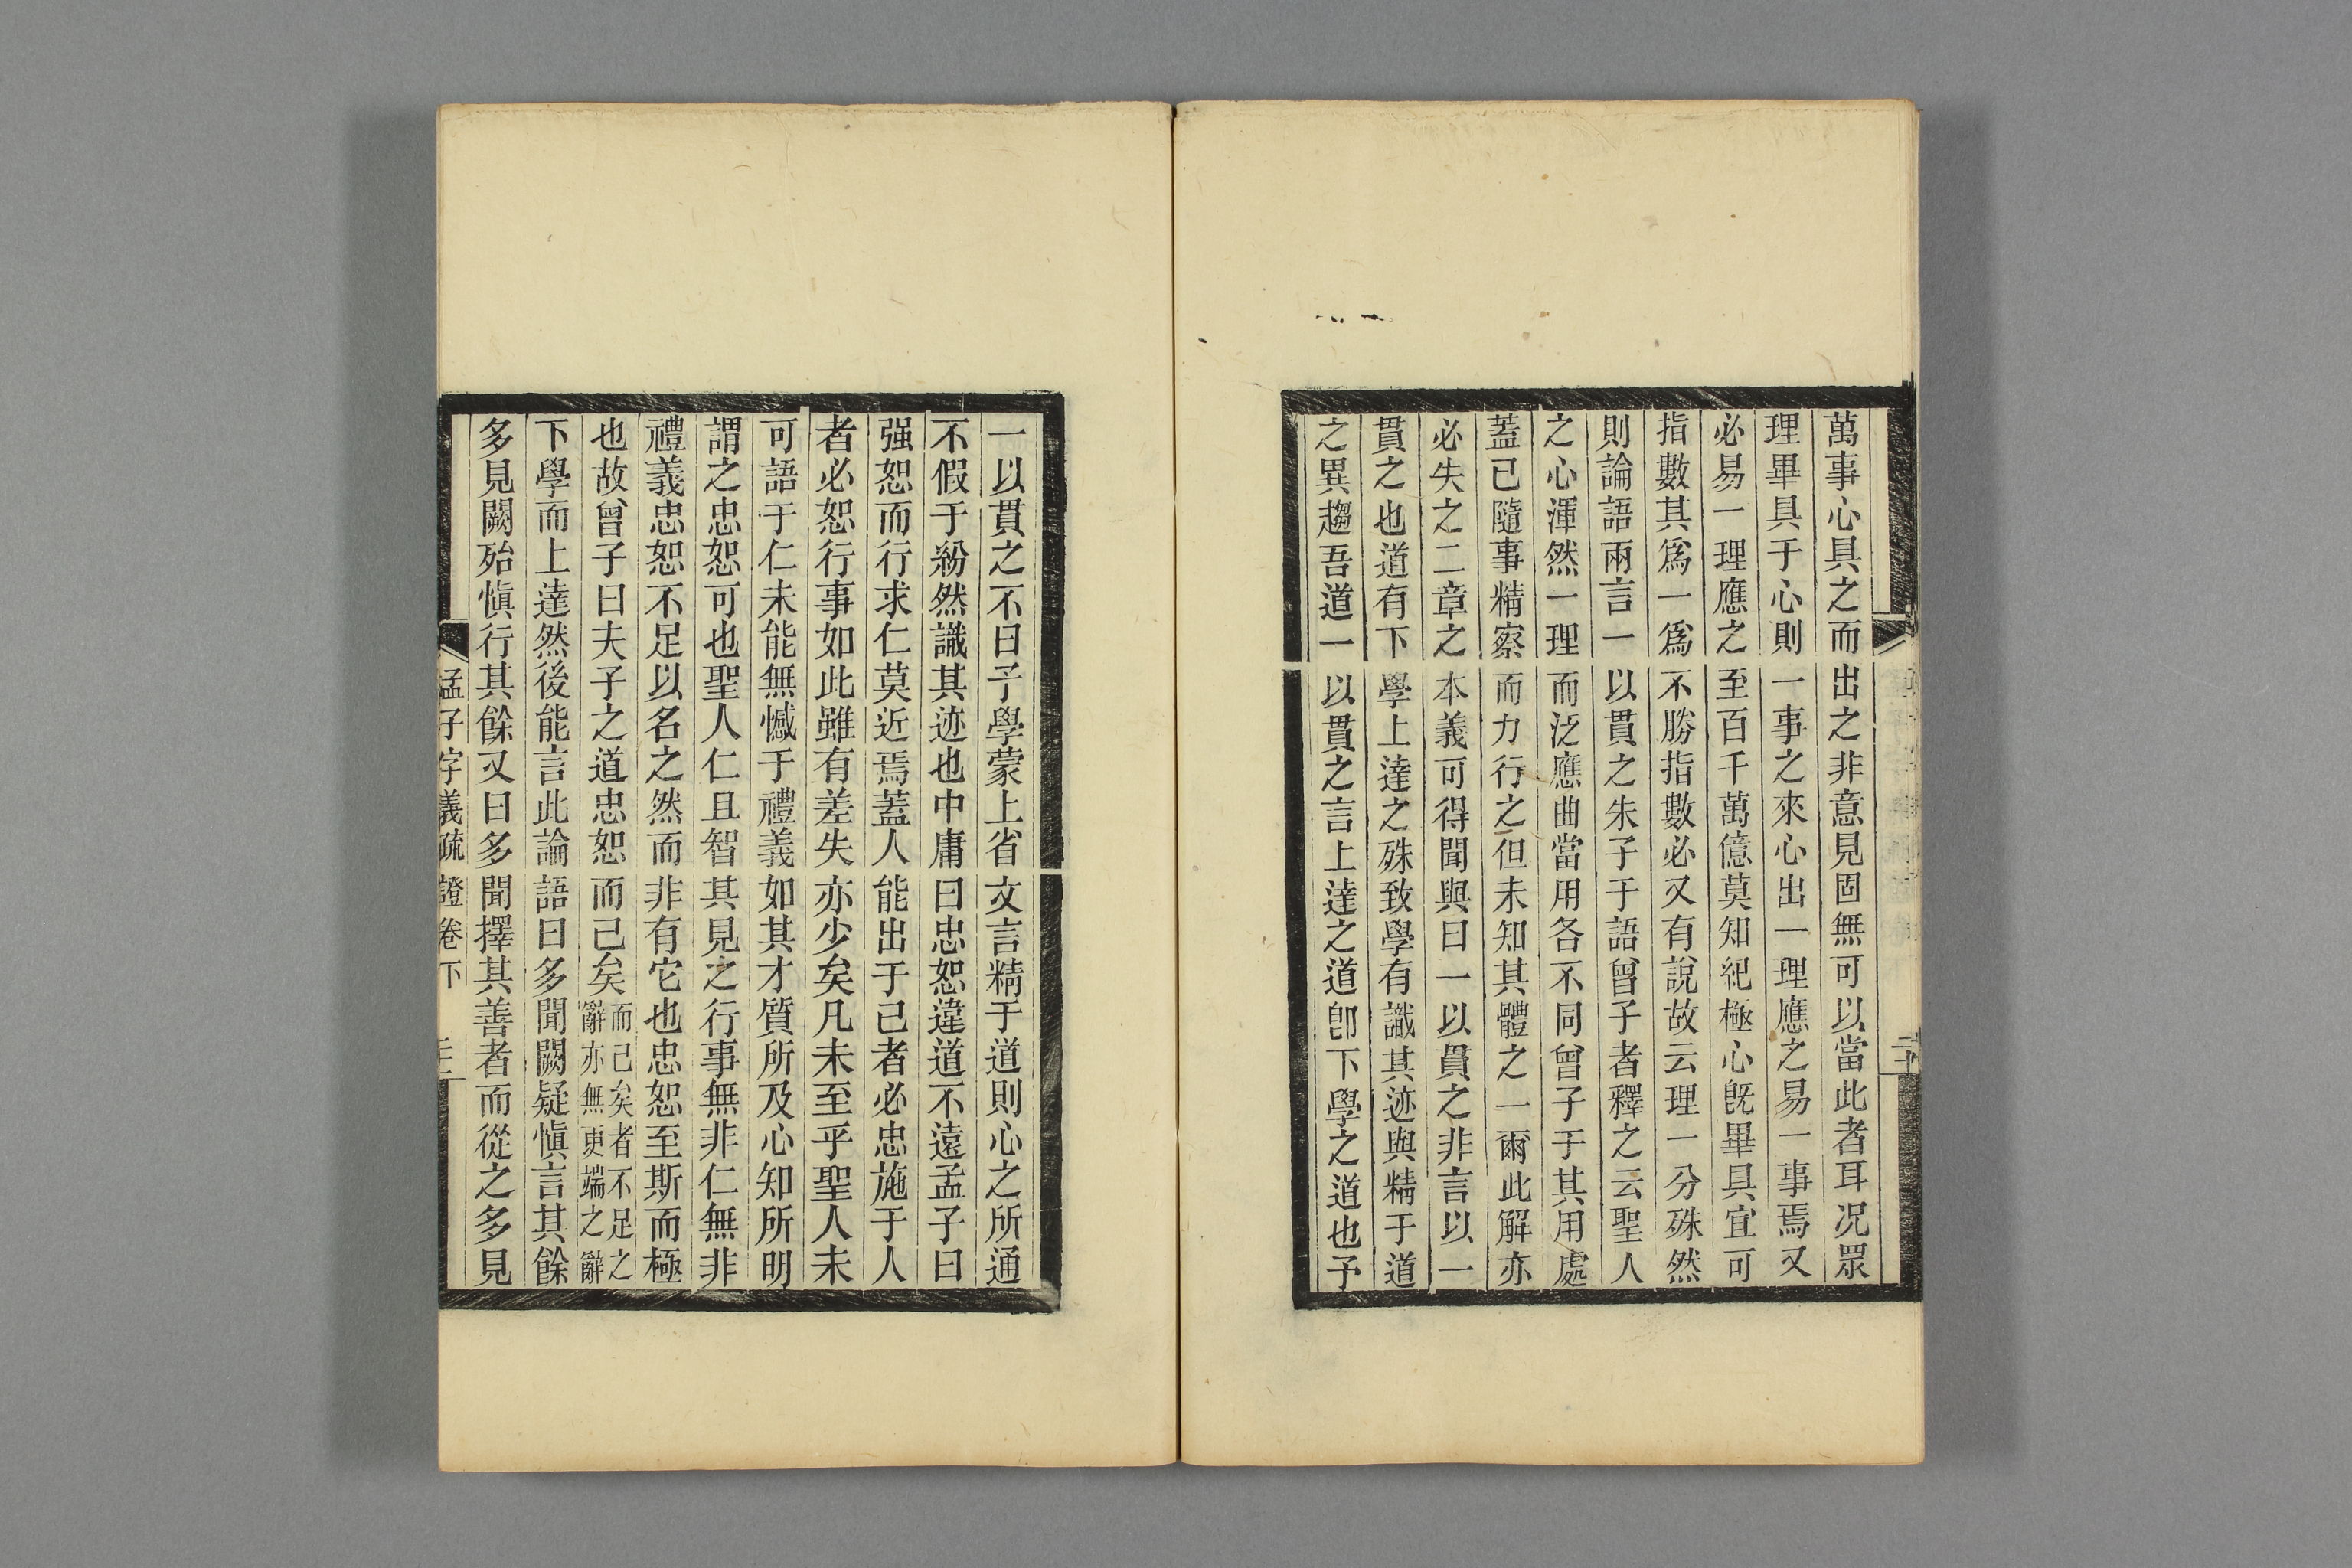 萬事心具之而出之非意見固無可以當此者耳况眾
理畢具于心則一事之來心出一理應之易一事焉又
必易一理應之至百千萬億莫知紀極心旣畢具宜可
指數其爲一爲不勝指數必又有說故云理一分殊然
則論語兩言一以貫之朱子于語曾子者釋之云聖人
之心渾然一理而泛應曲當用各不同曾子于其用處
蓋已隨事精察而力行之但未知其體之一爾此解亦
必失之二章之本義可得聞與曰一以貫之非言以一
貫之也道有下學上達之殊致學有識其迹與精于道
之異趨吾道一以貫之言上達之道卽下學之道也予
一以貫之不曰予學蒙上省文言精于道則心之所通
不假于紛然識其迹也中庸曰忠恕違道不遠孟子曰
强恕而行求仁莫近焉蓋人能出于己者必忠施于人
者必恕行事如此雖有差失亦少矣凡未至乎聖人未
可語于仁未能無憾于禮義如其才質所及心知所明
謂之忠恕可也聖人仁且智其見之行事無非仁無非
禮義忠恕不足以名之然而非有它也忠恕至斯而極
也故曾子曰夫子之道忠恕而已矣而已矣者不足之
辭亦無更端之辭
下學而上達然後能言此論語曰多聞闕疑愼言其餘
多見闕殆愼行其餘又曰多聞擇其善者而從之多見
孟子字義疏證卷下